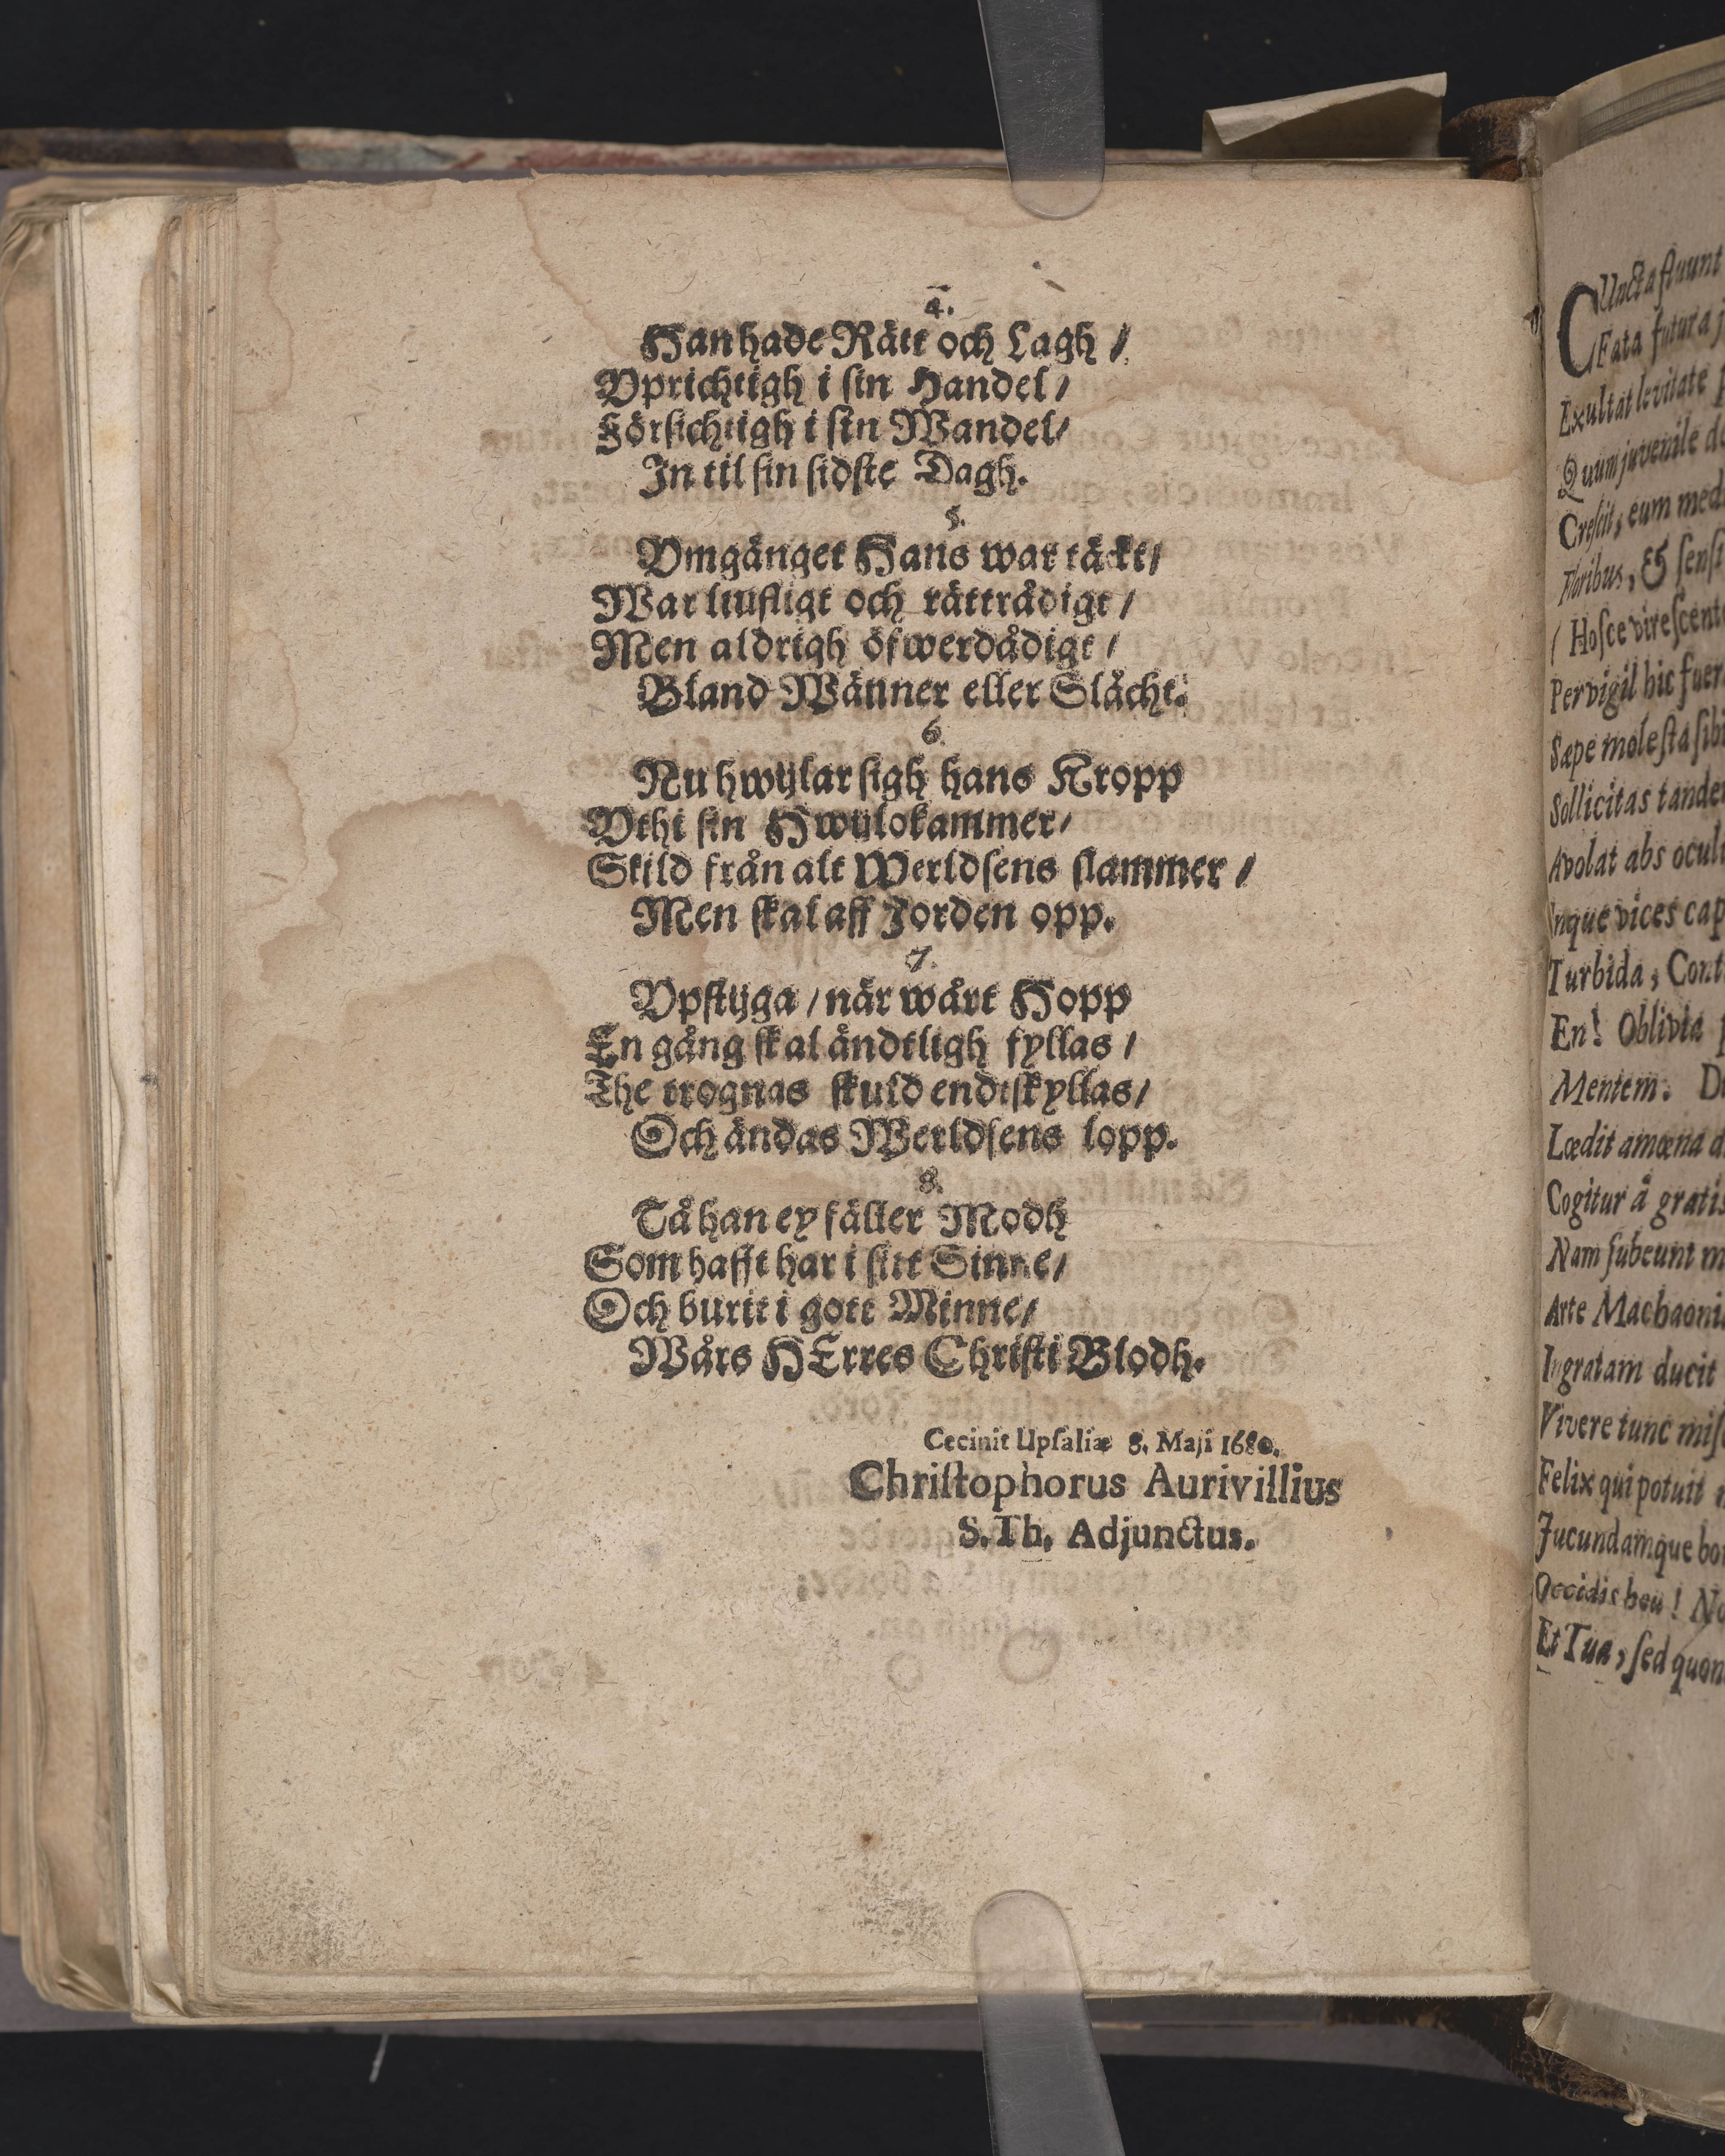 4.
Han hade Rätt och Lagh /
Vprichtigh i sin Handel /
Försichtigh i sin Wandel /
In til sin sidste Dagh.
5.
Vmgänget Hans war täckt /
War liufligt och rättrådigt /
Men aldrigh öfwerdådigt /
Bland Wänner eller Slächt.
6.
Nu hwijlar sigh hans Kropp
Vthi sin Hwijlokammer /
Skild från alt Werldsens slammer /
Men skal aff Jorden opp.
7.
Vpstijga / når wårt Hopp
En gång skal ändtligh fyllas /
The trognas skuld endtskyllas /
Och ändas Werldsens lopp.
8.
Tå han ey fäller Modh
Som hafft har i sitt Sinne /
Och burit i gott Minne /
Wårs HErres Christi Blodh.
Cecinit Upsaliæ 8. Maji 1680.
Christophorus Aurivillius
S. Th. Adjunctus.
CUncta fluunt
Fata futura
Exultat levitate
Quum juvenile
Crescit, eum
Floribus, &
( Hosce
Pervigil hic
Sæpe molesta
Sollicitas
Avolat abs
Inque vices
Turbida,
En! Oblivia
Mentem.
Lædit amœna
Cogitur â gratis
Nam subeunt
Arte
Ingratam ducit
Vivere tunc
Felix qui potuit
Jucundamque
Occidis heu!
Et Tua, sed